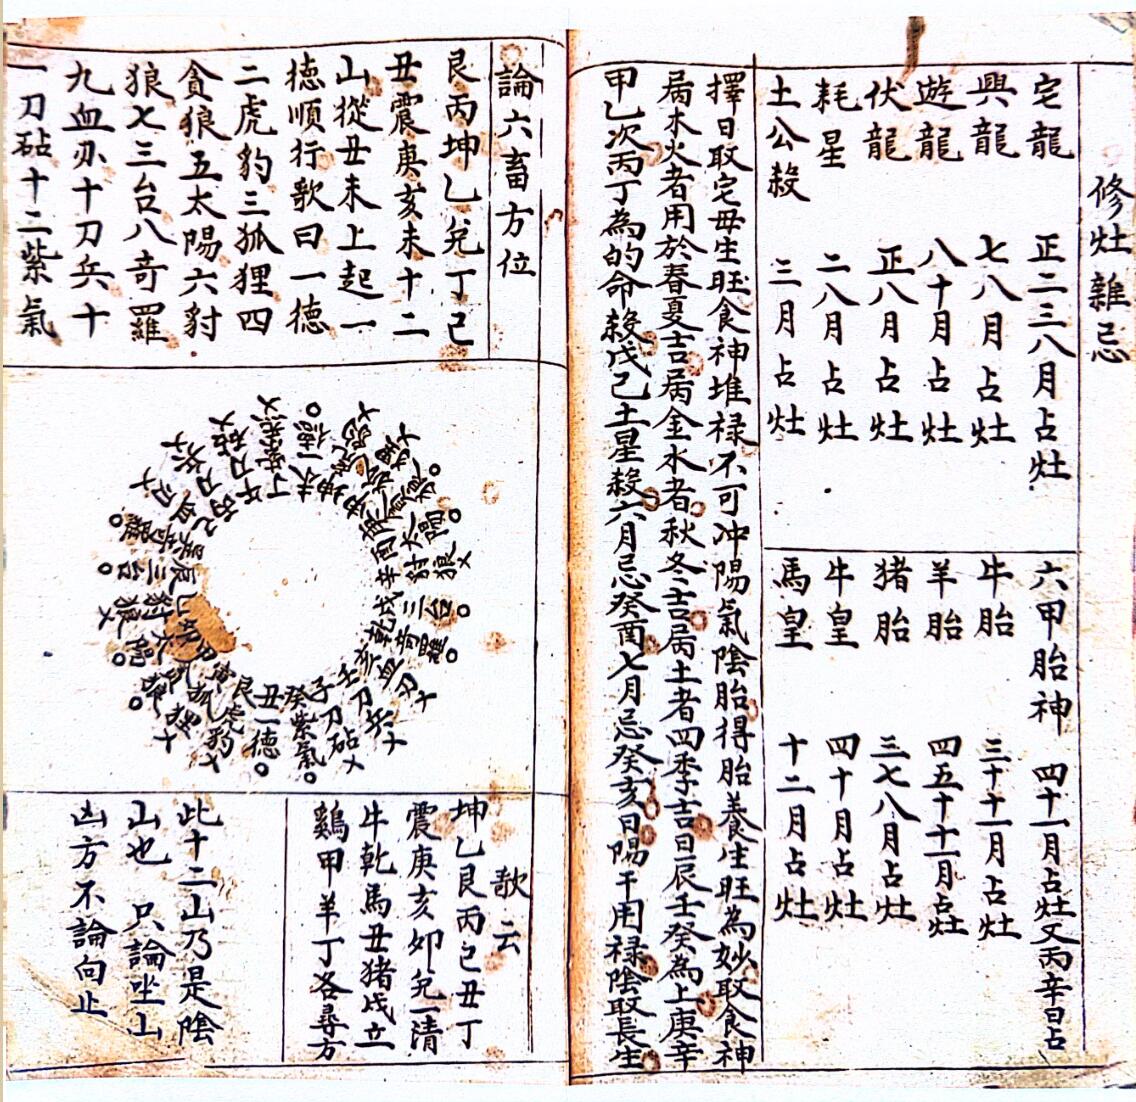 修灶雜忌
宅龍 正二三八月占灶
興龍 七八月占灶
遊龍 八十月占灶
伏龍 正八月占灶
耗星 二八月占灶
土公殺 三月占灶
六甲胎神 四十一月占灶又丙辛日占
牛胎 三十十一月占灶
羊胎 四五十十一月占灶
猪胎 三七八月占灶
牛皇 四十月占灶
馬皇 十二月占灶
擇日取宅母生旺食神堆禄不可冲陽氣陰胎得胎養生旺為妙取食神
屬木火者用於春夏吉屬金水者秋冬吉屬土者四季吉日辰壬癸為上庚辛
甲乙次丙丁為的命殺戊己土星殺六月忌癸酉七月忌癸亥日陽干用禄陰取長生
論六畜方位
艮丙坤乙兌丁己
丑震庚亥未十二
山從丑未上起一
德順行歌曰一德
二虎豹三狐狸四
貪狼五太陽六豺
狼七三台八奇羅
九血刃十刀兵十
一刀砧十二紫氣
未一德
丁紫氣
午刀砧
丑一德
艮虎豹
癸紫氣
子刀砧
壬刀兵
亥血刃
乾奇羅
戌三台
辛豺狼
酉太陽
歌云
坤乙艮丙己丑丁
震庚亥卯兌一清
牛乾馬丑猪戌立
鷄甲羊丁各尋方
此十二山乃是陰
山也 只論坐山
凶方不論向止